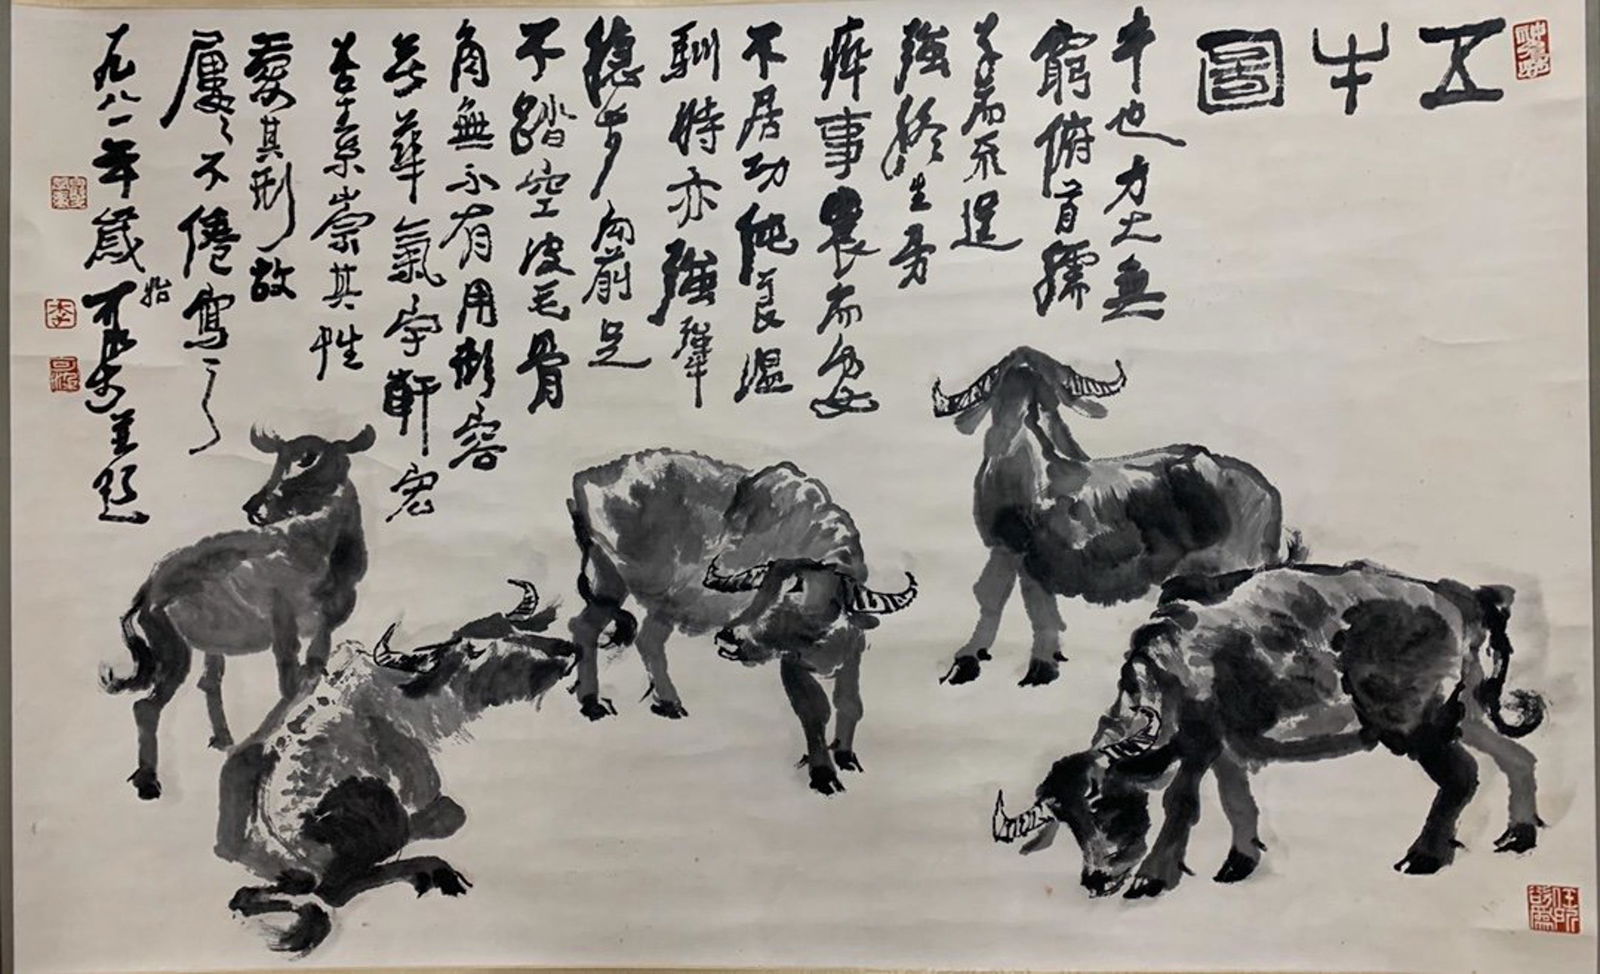 五牛圖
牛也力大無
窮俯首孺
子而不逞
強終生勞
瘁事農而安
不居功純良溫
馴時亦強犟
穩步向前足
不踏空皮毛骨
角無不有用形容
無華氣宇軒宏
吾素崇其性
愛其形故
屢〻不倦寫之
一九八一年歲始可染並題
李
可染